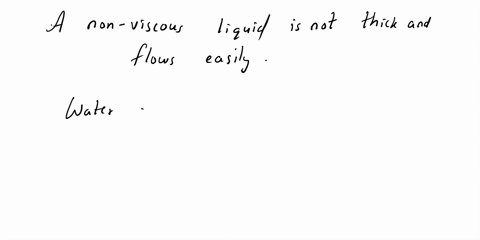 A non-viscous liquid is not thick and
flows easily.
Water .